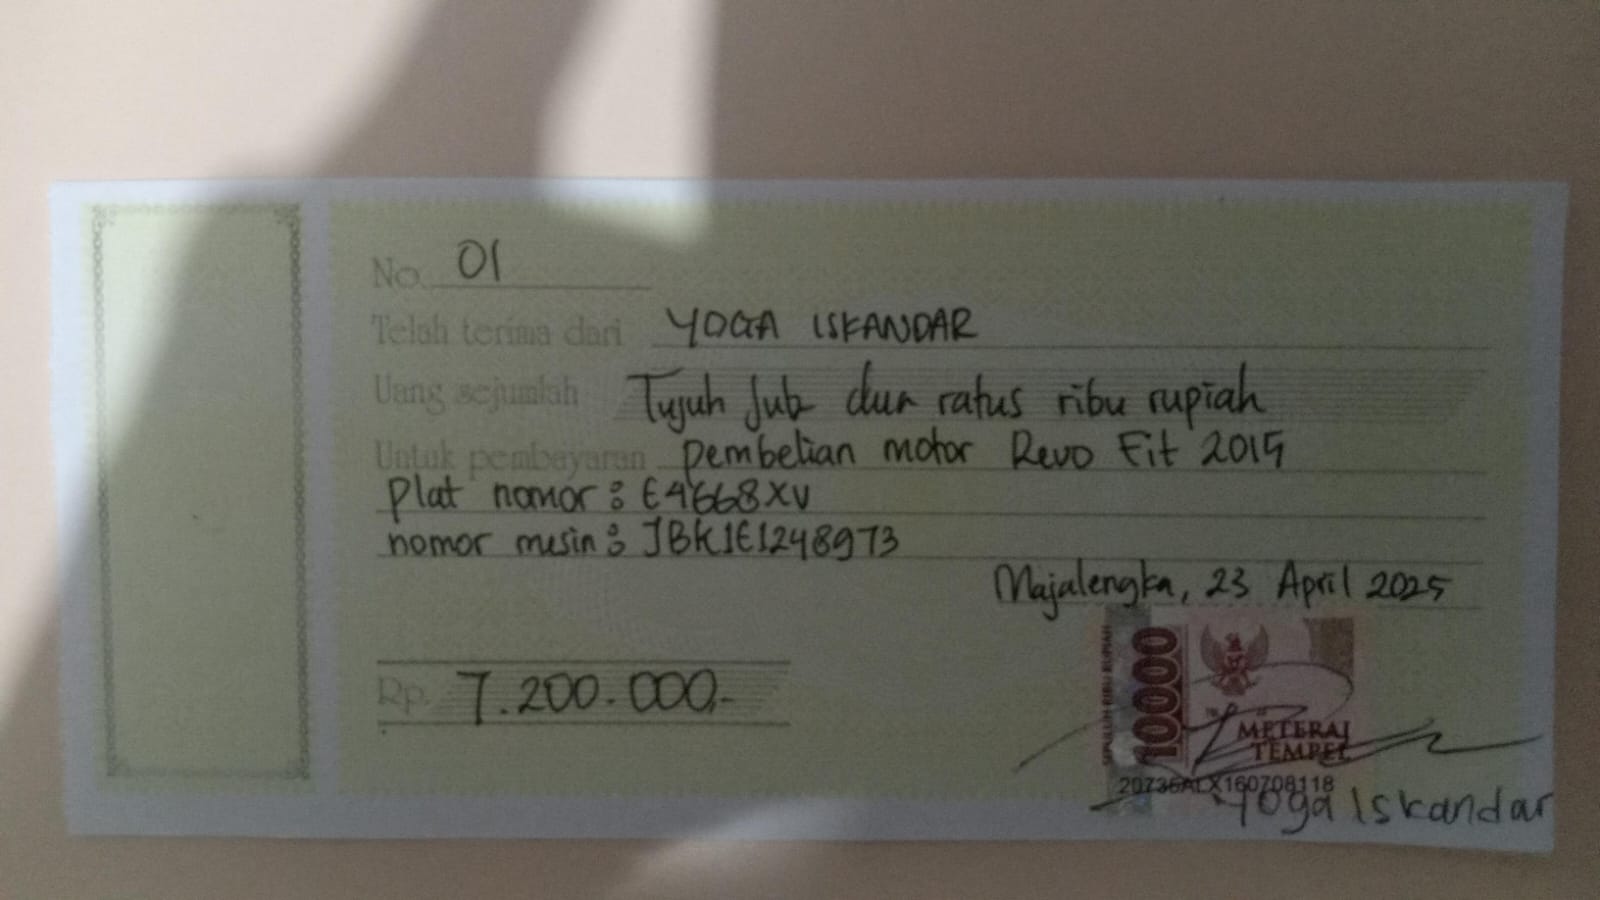 No. 01
Telah terima dari YOGA ISKANDAR
Uang sejumlah Tujuh Juta dua ratus ribu rupiah
Untuk pembayaran pembelian motor Revo Fit 2015
Plat nomor : E4668XV
nomor mesin : JBK1E1248973
Majalengka, 23 April 2025
Rp. 7.200.000,-
SEPULUH RIBU RUPIAH
10000
METERAI
TEMPEL
20735ALX160708118
Yoga Iskandar